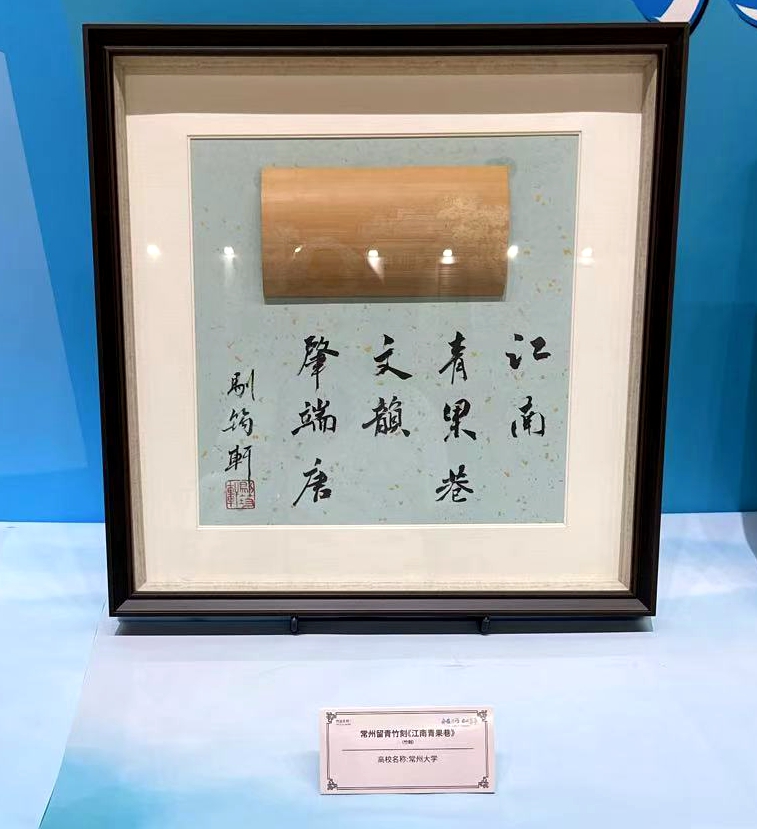 江南
青果巷
文韻
肇端唐
剮筠軒
常州留青竹刻《江南青果巷》
(竹刻)
高校名称:常州大学